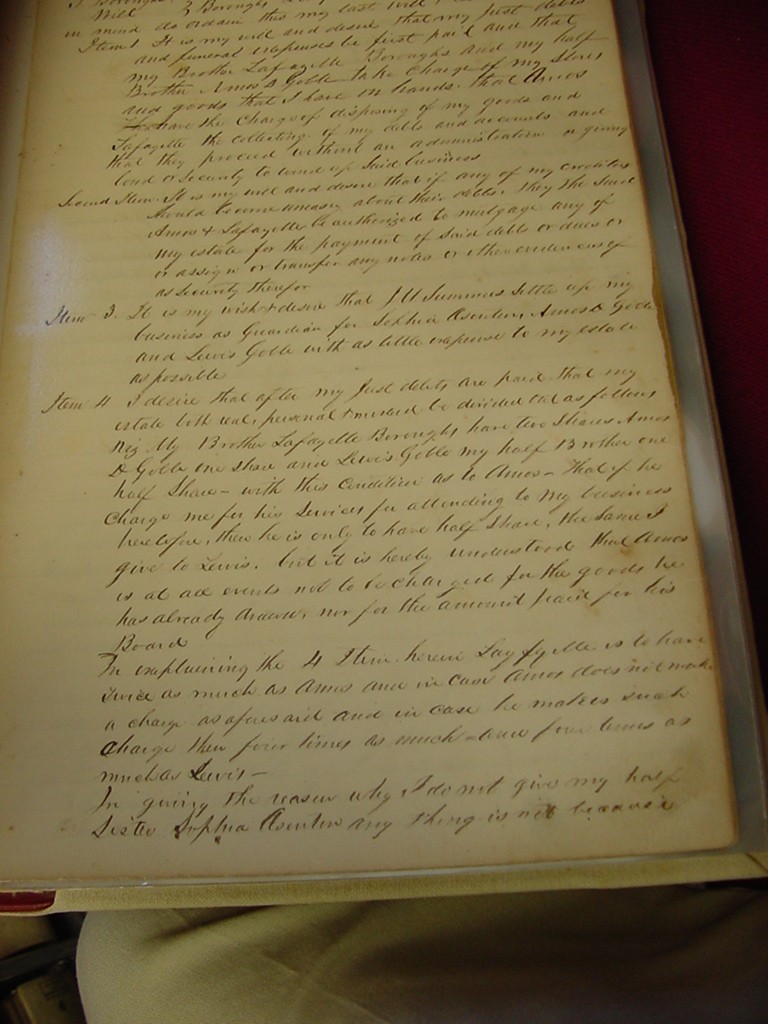 Will
in mind do ordain this my last will
Item 1 It is my will and desire that my just debts
and funeral expenses be first paid and that
my Brother Lafayette Boroughs and my half
Brother Amos D Goble take charge of my Stores
and goods that I have in hands. that Amos
have the charge of disposing of my goods and
Lafayette the collecting of my debts and accounts and
that they proceed without an administration or giving
bond or security to wind up said business
Second Item. It is my will and desire that if any of my creditors
should become uneasy about their debts, they the said
Amos & Lafayette be authorized to mortgage any of
my estate for the payment of said debts or dues or
or assign or transfer any notes or other evidences of
as security therefor
Item 3. It is my wish & desire that J U Summers Settle up my
business as Guardian for Sophia Asenten, Amos D Goble
and Lewis Goble with as little expense to my estate
as possible
Item 4 I desire that after my just debts are paid that my
estate both real, personal & mixed be divided out as follows
Viz My Brother Lafayette Boroughs have two Shares Amos
D Goble one share and Lewis Goble my half Brother one
half Share - with this Condition as to Amos - That if he
Charge me for his Services for attending to my business
heretofore, then he is only to have half Share, the same I
give to Lewis. but it is hereby understood that Amos
is at all events not to be charged for the goods he
has already drawn, nor for the amount paid for his
Board
In explaining the 4 Item herein Layfyette is to have
twice as much as Amos and in case Amos does not make
a charge as aforesaid and in case he makes such
charge then four times as much - and four times as
much as Lewis -
In giving the reason why I do not give my half
Sister Sophia Asenten any thing is not because